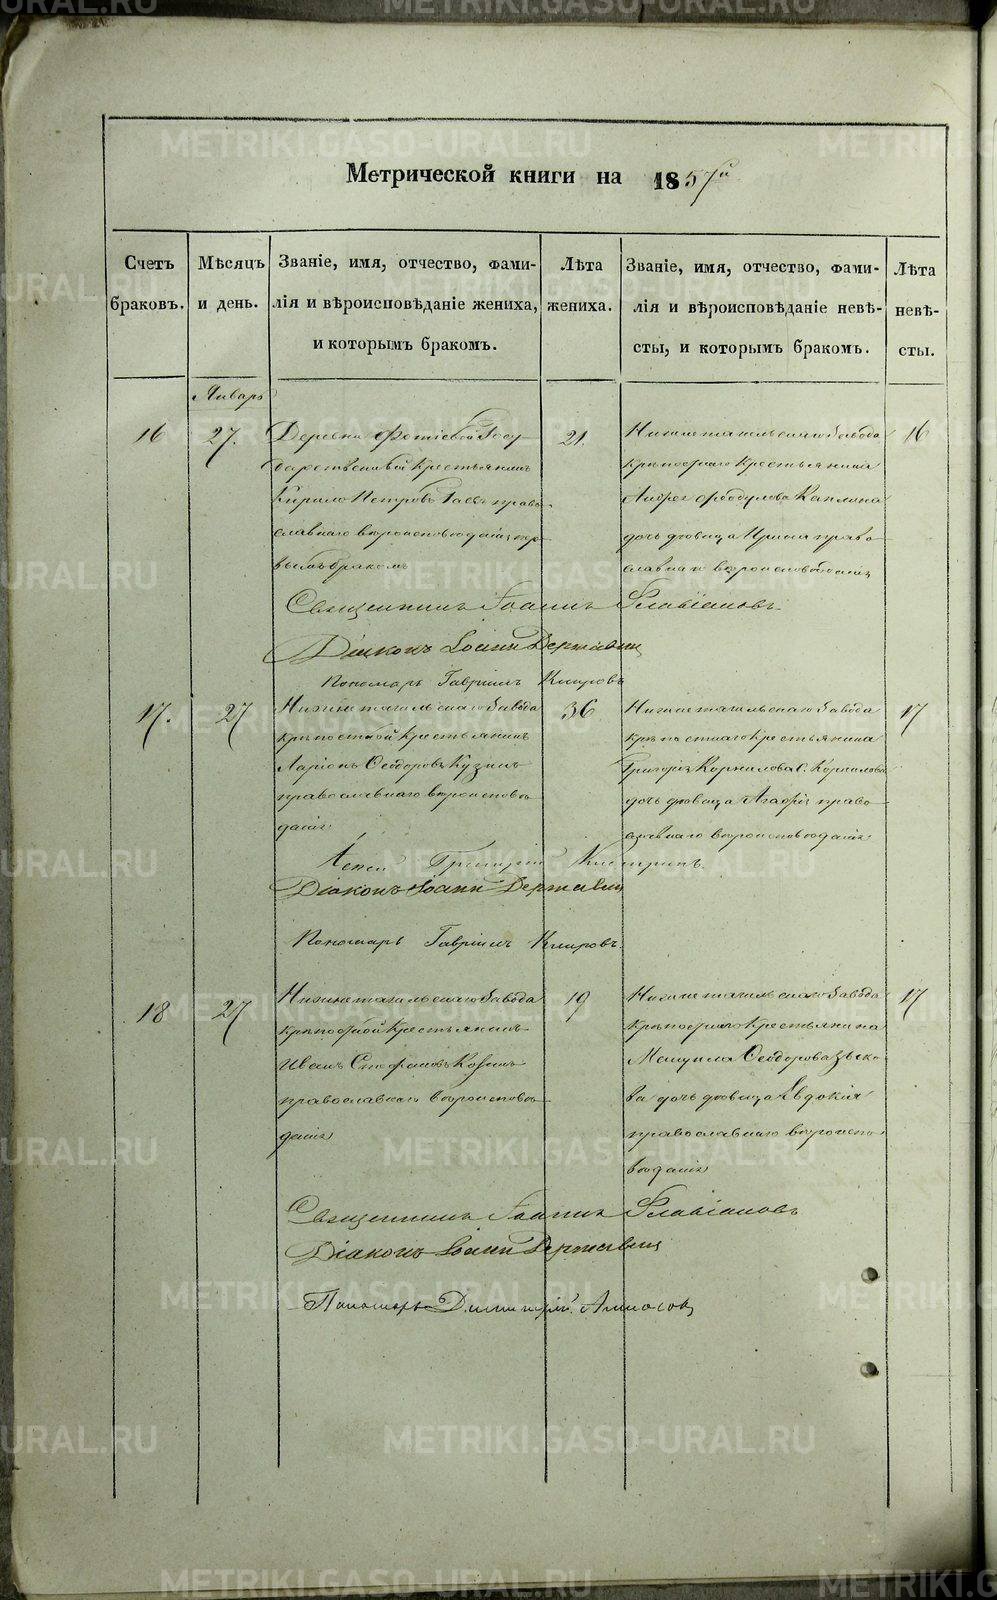 METRIKI.GASO-URAL.RU
Метрической книги на 1857й
Счетъ браковъ.
Мѣсяцъ и день.
Званіе, имя, отчество, фами-
лія и вѣроисповѣданіе жениха,
и которымъ бракомъ.
Лѣта жениха.
Званіе, имя, отчество, фами-
лія и вѣроисповѣданіе невѣ-
сты, и которымъ бракомъ.
Лѣта невѣ-
сты.
Январь
16
27.
Деревни Фотіевой Госу-
дарственной Крестьянинъ
Кирило Петровъ право-
славнаго вѣроисповѣданія пер-
вымъ бракомъ
21.
Нижнетагильскаго Завода
крѣпостнаго Крестьянина
Андрея
дочь дѣвица Ирина право-
славнаго вѣроисповѣданія
16
Священникъ Іоаннъ Флавіановъ
Діаконъ Іоаннъ Державин
Пономарь Гавріилъ Кипровъ
17.
27
Нижнетагильскаго Завода
крѣпостной Крестьянинъ
Ларіонъ Ѳеодоровъ
православнаго вѣроисповѣ-
данія
36
Нижнетагильскаго Завода
крѣпостнаго Крестьянина
Григорія Корнилова
дочь дѣвица Агафія право-
славнаго вѣроисповѣданія
17
Іерей Григорій
Діаконъ Іоаннъ Державин
Пономарь Гавріилъ Кипровъ
18
27
Нижнетагильскаго Завода
крѣпостной Крестьянинъ
Иванъ Стефановъ
православнаго вѣроисповѣ-
данія
19
Нижнетагильскаго Завода
крѣпостнаго Крестьянина
Ѳеодорова Зыко-
ва дочь дѣвица Евдокія
православнаго вѣроиспо-
вѣданія
17
Священникъ Іоаннъ Флавіановъ
Діаконъ Іоаннъ Державин
Пономарь Димитрій